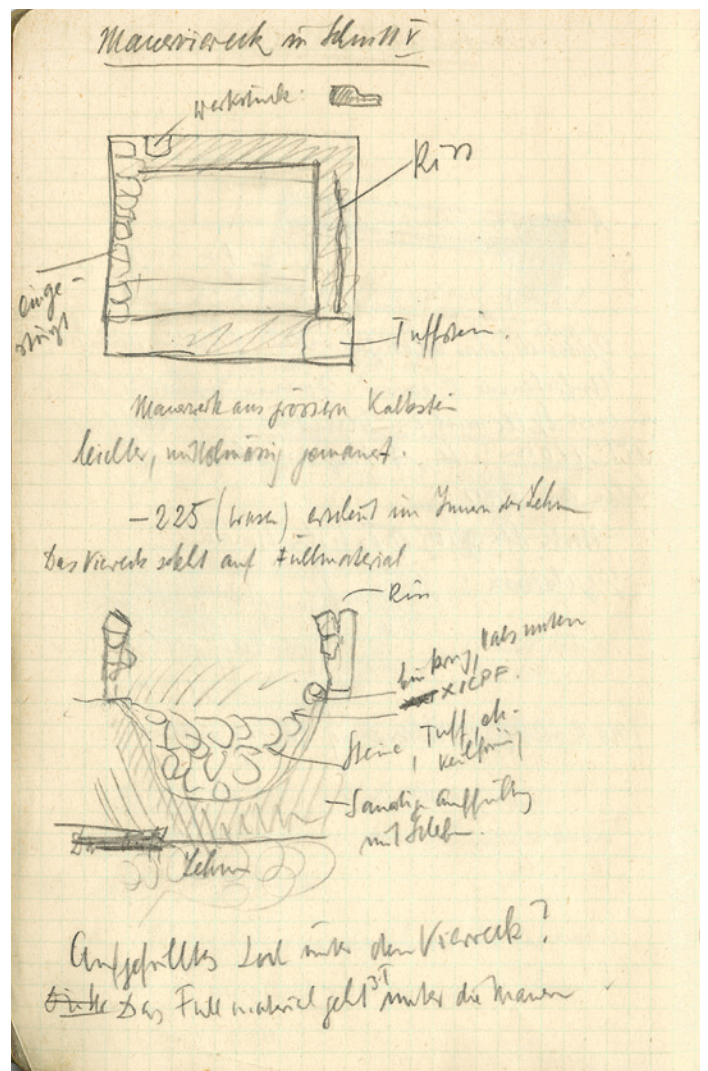 Mauerviereck in Schnitt V
Werkstück:
Riss
einge-
stürzt
Tuffstein.
Mauerwerk aus grössern Kalkstein
leichter, mittelmässig gemauert.
-225 (Wasen) erscheint im Innern der Lehm
Das Viereck steht auf Füllmaterial
Riss
unten
XICPF.
Steine, Tuff,
keilförmig
Sandige Auffüllung
mit Scherben.
Lehm
Aufgefülltes Loch unter dem Viereck?
Das Füllmaterial geht z.T. unter die Mauern